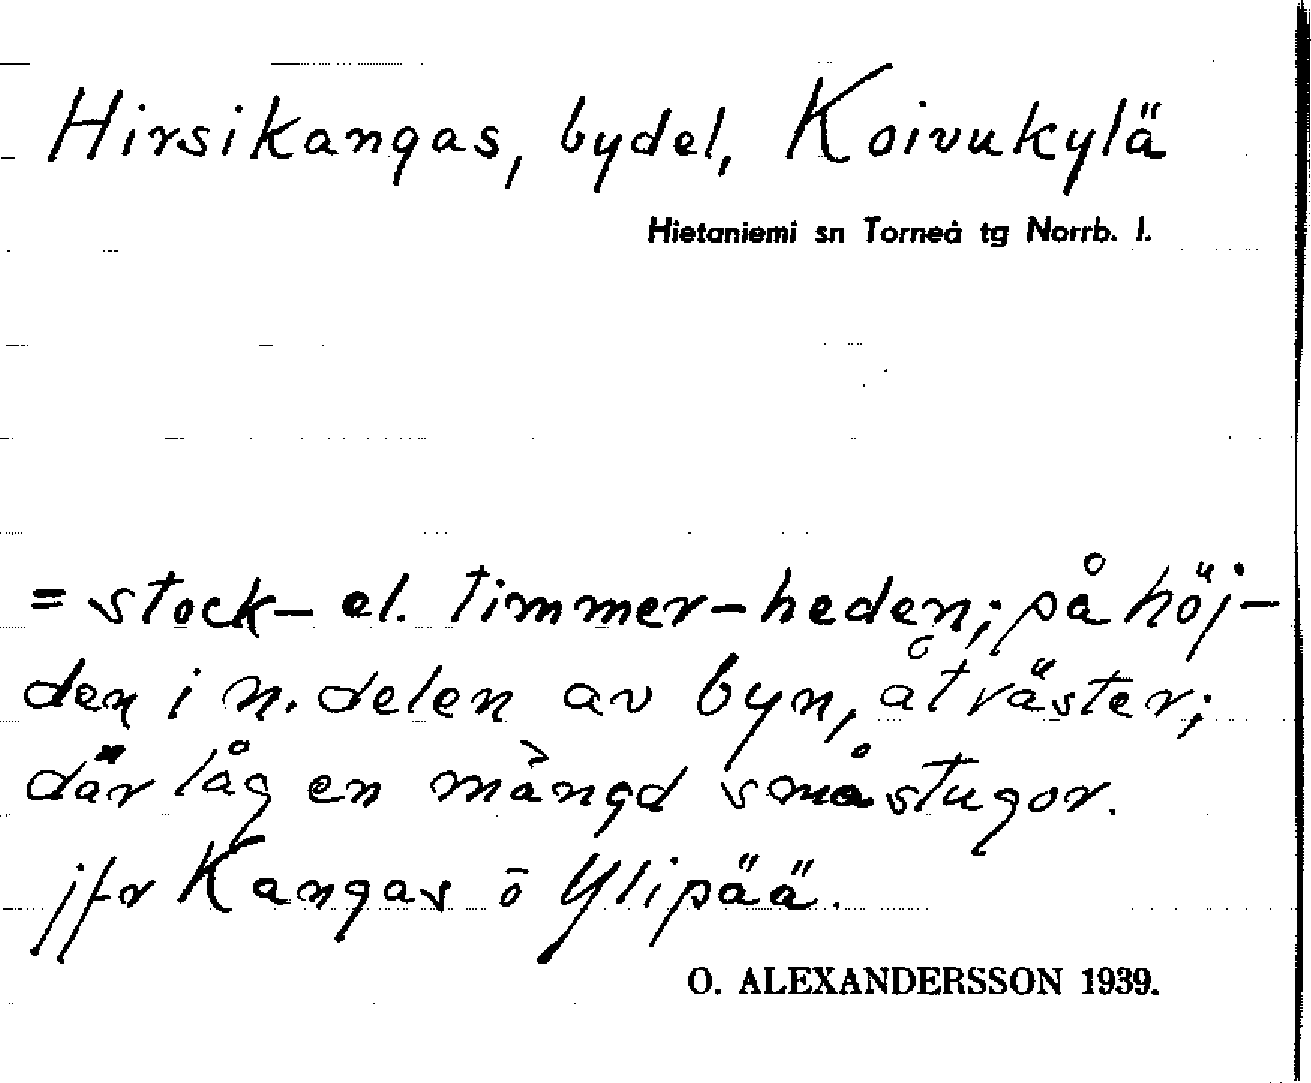 Hirsikangas, bydel, Koivukylä
Hietaniemi sn Torneå tg Norrb. l.
= stock- el. timmer-heden; på höj-
den i n. delen av byn, åt väster;
där låg en mängd småstugor.
jfr Kangas o Ylipää.
O. ALEXANDERSSON 1939.